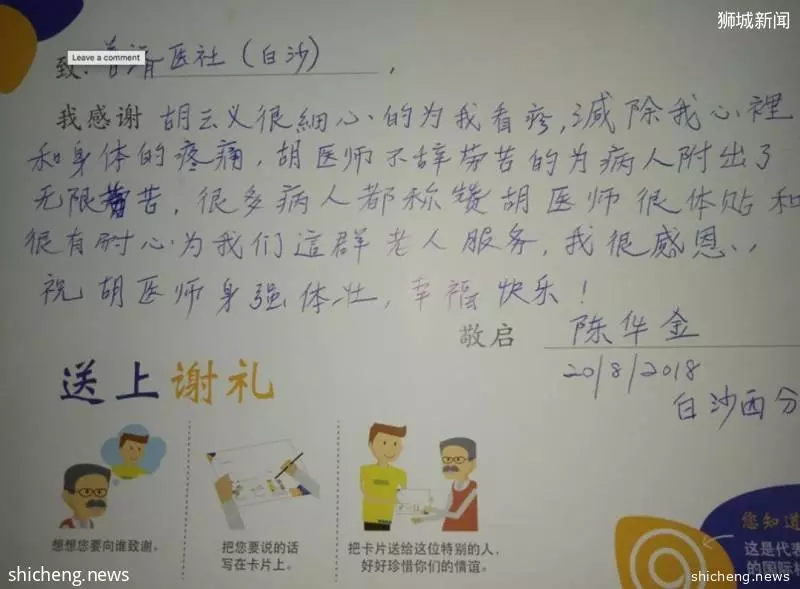 狮城新闻
Leave a comment
致: 普济医社（白沙）,
我感谢 胡云义很細心的为我看疼,减除我心裡
和身体的疼痛,胡医师不辞劳苦的为病人附出了
无限劳苦,很多病人都称赞胡医师很体贴和
很有耐心为我们這群老人服务,我很感恩、、
祝 胡医师身强体壮,幸福快乐!
敬启 陈华金
20/8/2018
白沙西分
送上谢礼
想想您要向谁致谢。
把您要说的话
写在卡片上。
把卡片送给这位特别的人，
好好珍惜你们的情谊。
您知道
这是代表
的国际标
shicheng.news
shicheng.news